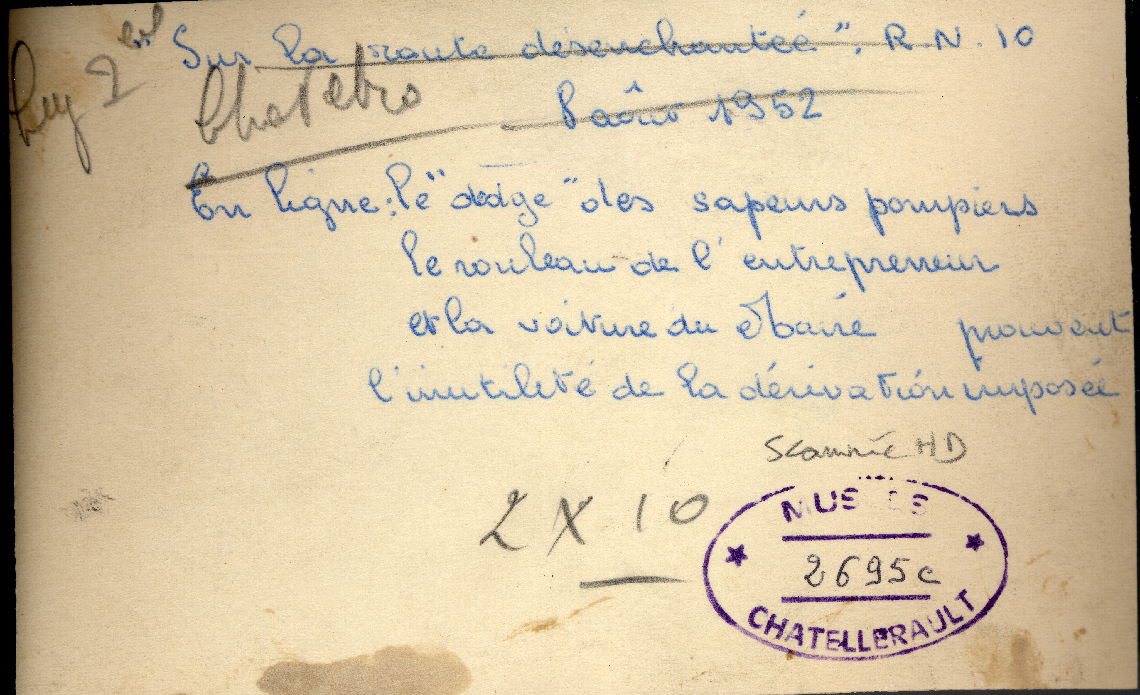 Sur la "route désenchantée". R.N. 10
août 1952
En ligne: le "dodge" des sapeurs pompiers
le rouleau de l'entrepreneur
et la voiture du Maire prouvent
l'inutilité de la dérivation imposée
Scannée HD
2 X 10
MUSÉES
2695c
CHATELLERAULT